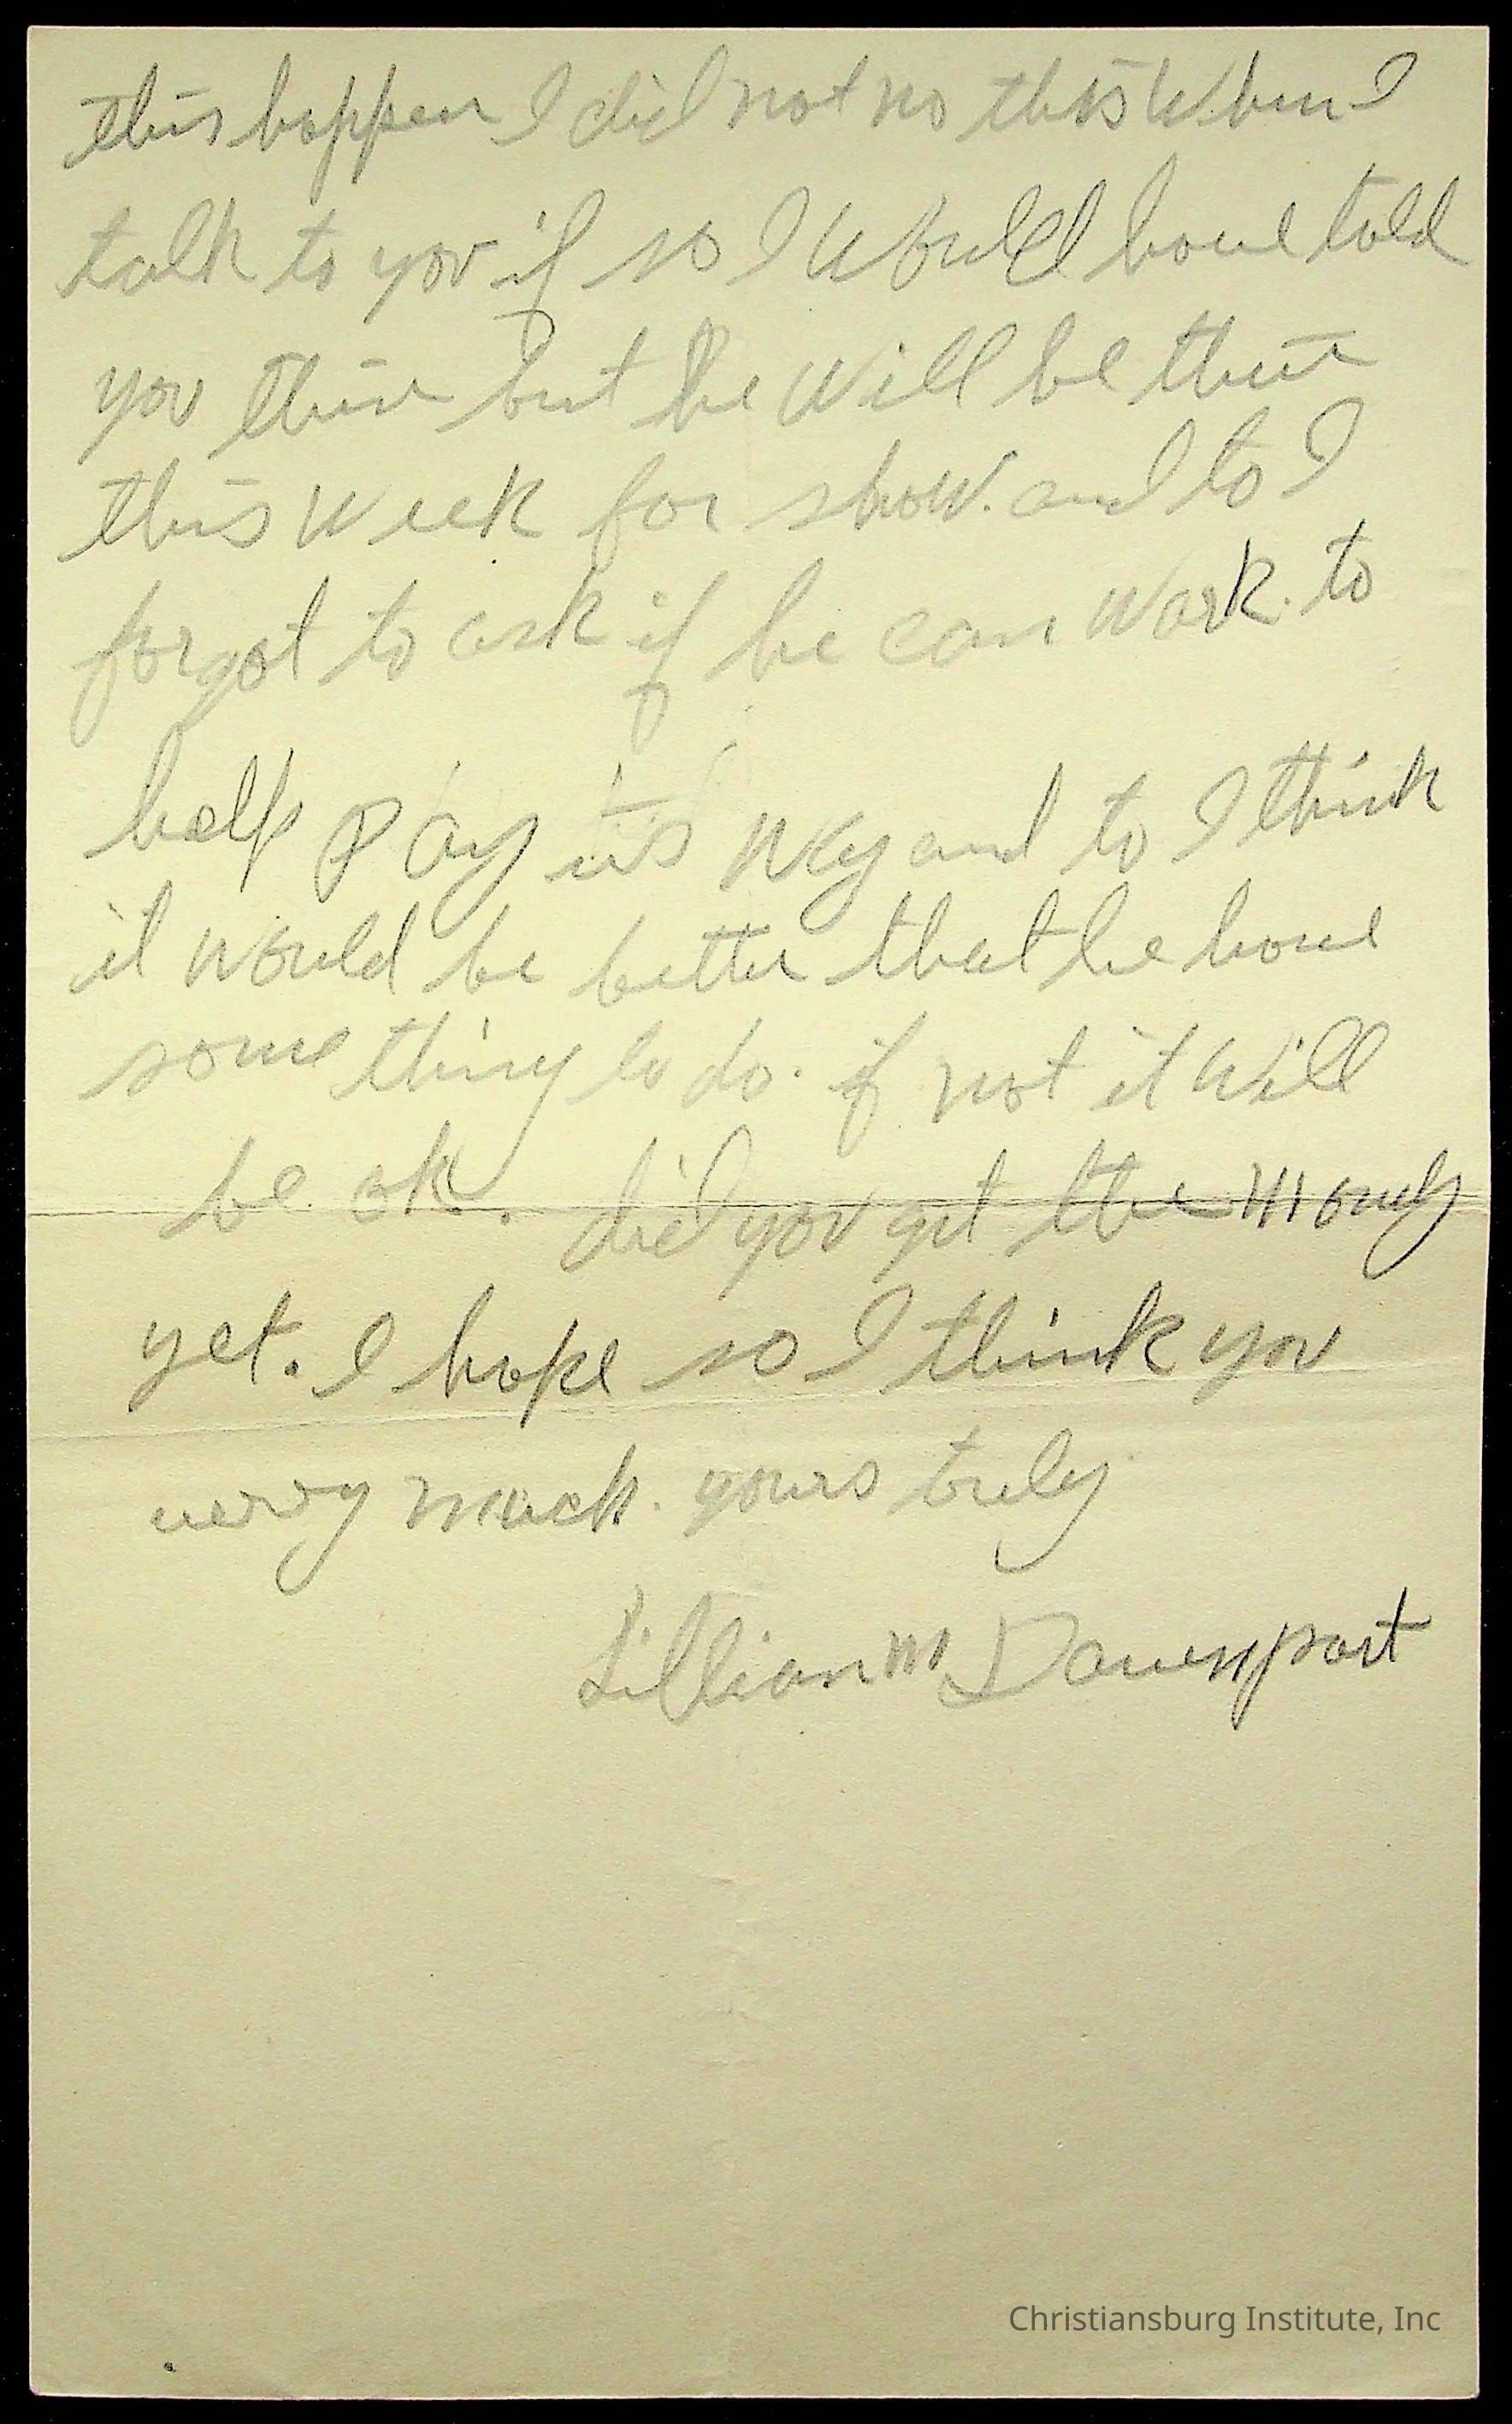 this happen I did not no this When I
talk to you if so I Would have told
you this but he Will be there
this Week for show. and to I
forgot to ask if he can Work. to
help Pay is Way and to I think
it would be better that he have
some thing to do. if not it Will
be ok. did you get the money
yet. I hope so I think you
verry much. yours truly
Lillian M Davenport
Christiansburg Institute, Inc